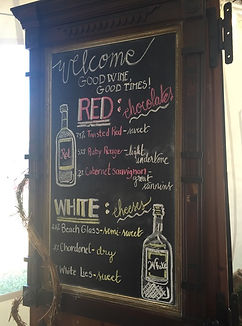 Welcome
GOOD WINE,
GOOD TIMES!
RED: chocolates
Twisted Red-sweet
Ruby Rouge-light
undertone
Cabernet Sauvignon-
great
tannins
Red
WHITE: cheeses
Beach Glass-semi-sweet
Chardonel-dry
White Lies-sweet
White